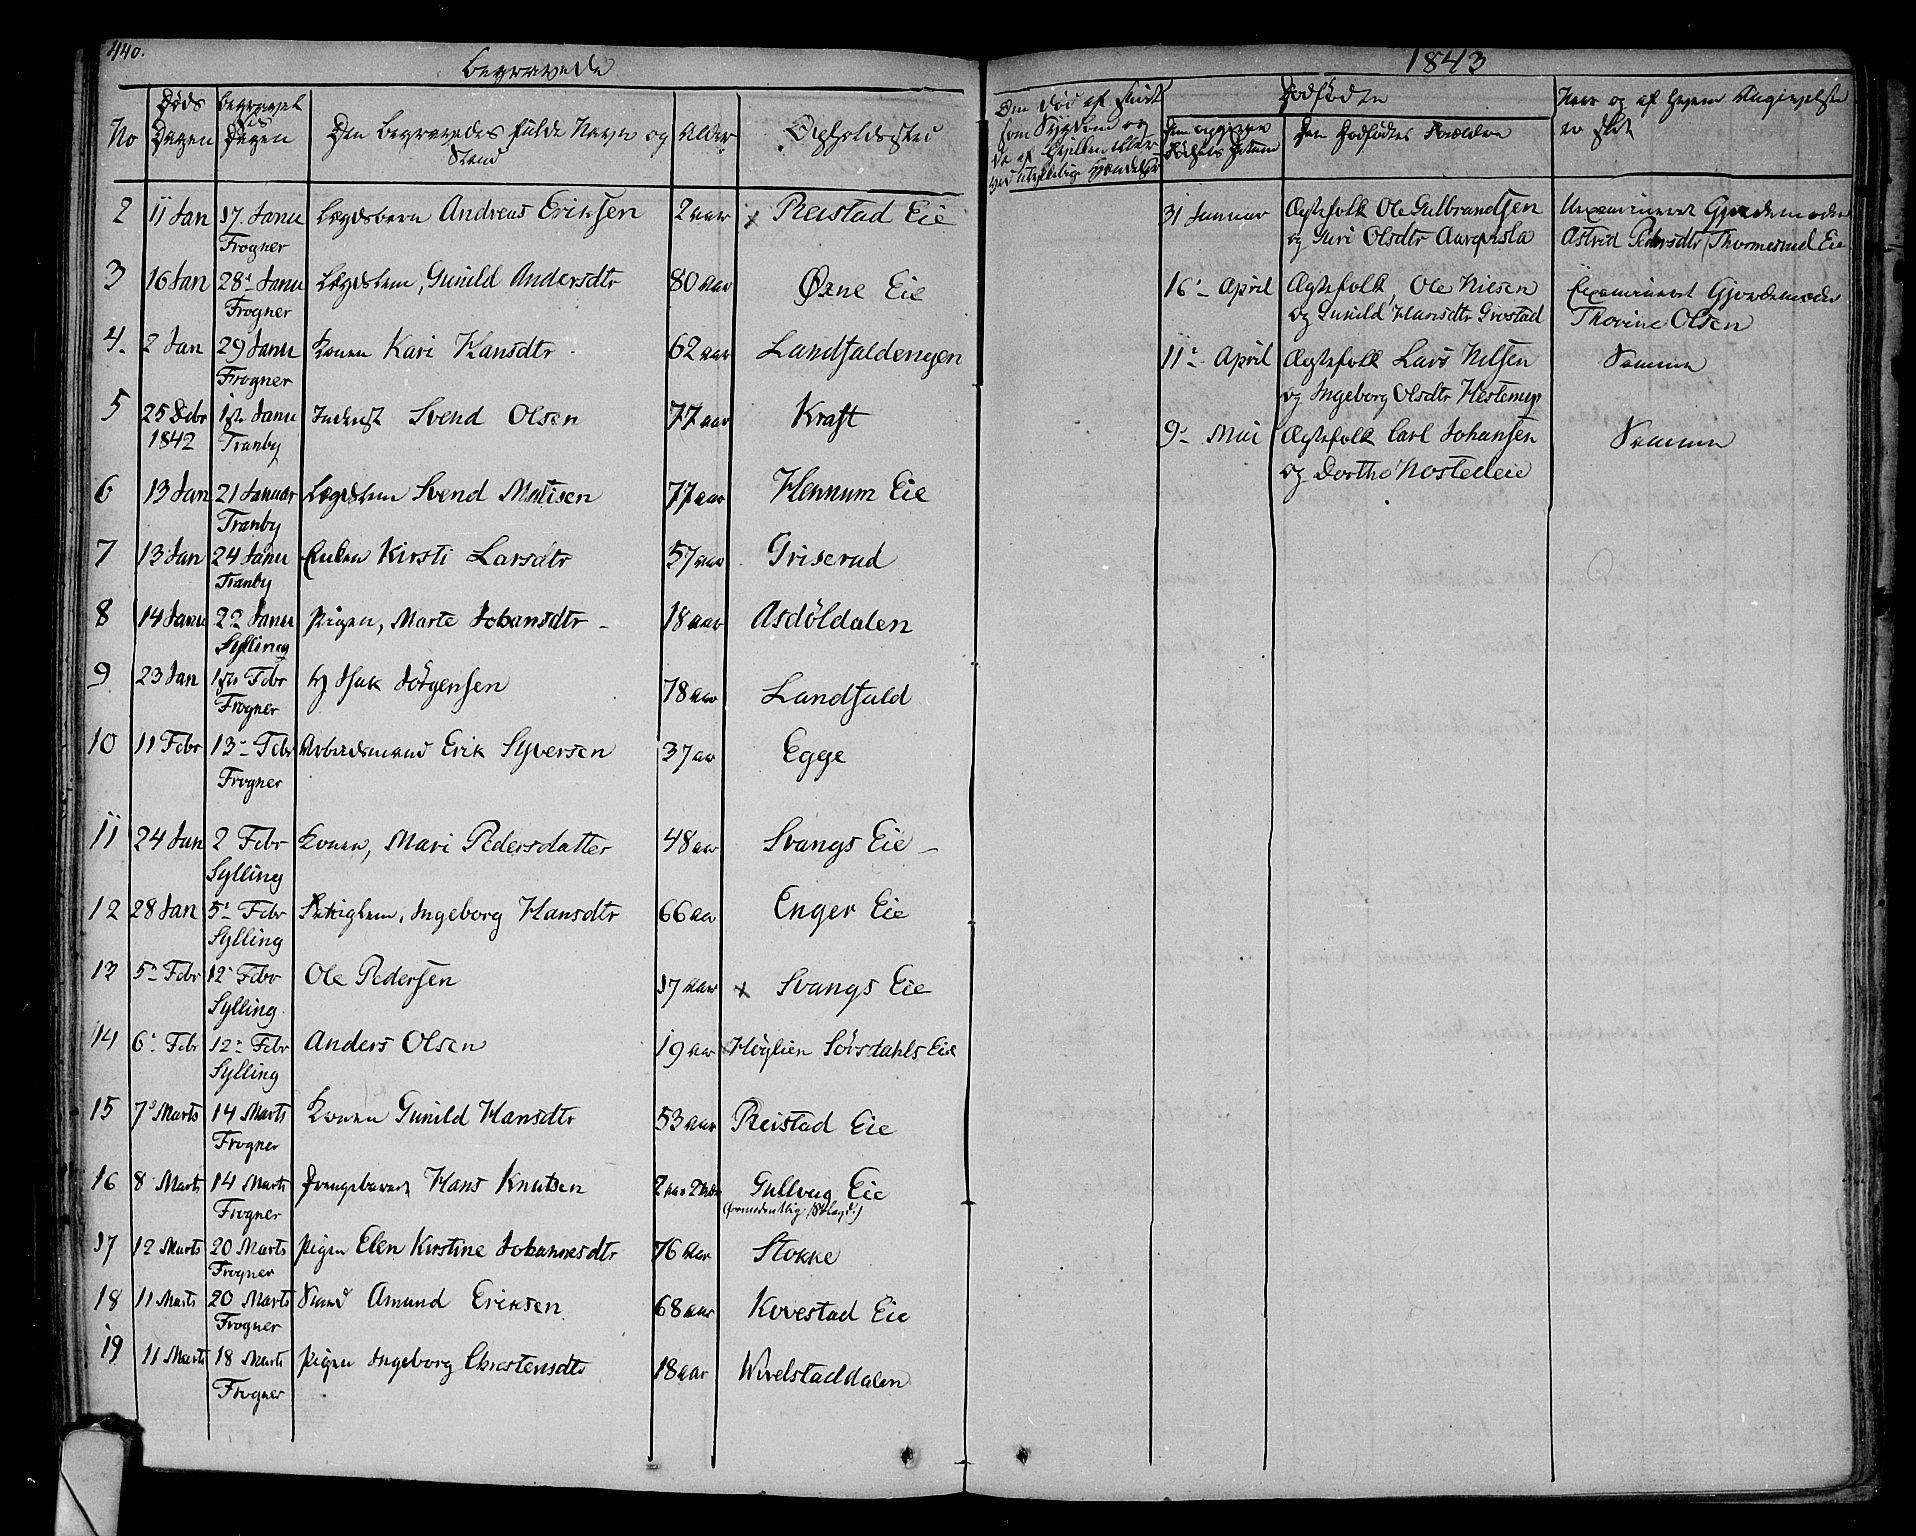 440.
Begravede
No
Døds Dagen
Begravelses Dagen
Den Begravedes fulde Navn og Stand
Alder
Opholdssted
2 11 Jan 17 Janu Frogner Lægdsbarn Andreas Eriksen 2 aar x Reistad Eie
3 16 Jan 28- Janu Frogner Lægdslem, Gunild Andersdtr 80 aar Øxne Eie
4. 2 Jan 29 Janu Frogner Konen Kari Hansdtr 62 aar Landfaldengen
5 25 Debr 1842 1ste Janu Tranby Inderst Svend Olsen 77 aar Kraft
6 13 Jan 21 Januar Tranby Lægdslem Svend Matisen 77 aar Hennum Eie
7 13 Jan 24 Janu Tranby Enken Kirsti Larsdtr 57 aar Griserud
8 14 Janu 22 Janu Sylling Pigen, Marte Johansdtr - 18 aar Asdöldalen
9 23 Jan 1ste Febr Frogner Isak Jörgensen 78 aar Landfald
10 11 Febr 13- Febr Frogner Arbeidsmand Erik Syversen 37 aar Egge
11 24 Jan 2 Febr Sylling Konen, Mari Pedersdatter 48 aar Svangs Eie -
12 28 Jan 5- Febr Sylling Fattiglem, Ingeborg Hansdtr 66 aar Enger Eie
13 5- Febr 12- Febr Sylling Ole Pedersen 17 aar x Svangs Eie
14 6- Febr 12- Febr Sylling Anders Olsen 19 aar Höglien Sörsdahls Eie
15 7- Marts 14 Marts Frogner Konen Gunild Hansdtr 53 aar Reistad Eie
16 8- Marts 14 Marts Frogner Drengebarnet Hans Knutsen 2 aar Gullaug Eie
(formodentlig
17 12 Marts 20 Marts Frogner Pigen Elen Kirstine Johannesdtr 76 aar Stokke
18 11 Marts 20 Marts Frogner Amund Eriksen 68 aar Kovestad Eie
19 11 Marts 18 Marts Frogner Pigen Ingeborg Christensdtr 18 aar Wivelstaddalen
1843
Den Död af hvilken
som Sygdom og
ved ulykkelig Hændelse
Dödfödte
Den Dödfödtes Forældre
Naar og af hvem Angivelsen
er skeet
31 Januar Ægtefolk Ole Gulbrandsen Uexamineret Gjordemoder
og Guri Olsdtr Astrid Pedersdtr Eie
16- April Ægtefolk, Ole Nielsen Examineret Gjordemoder
og Gunild Hansdtr Grostad Thorine Olsen
11- April Ægtefolk Lars Nilsen Samme
og Ingeborg Olsdtr
9- Mai Ægtefolk Carl Johansen Samme
og Dorthe